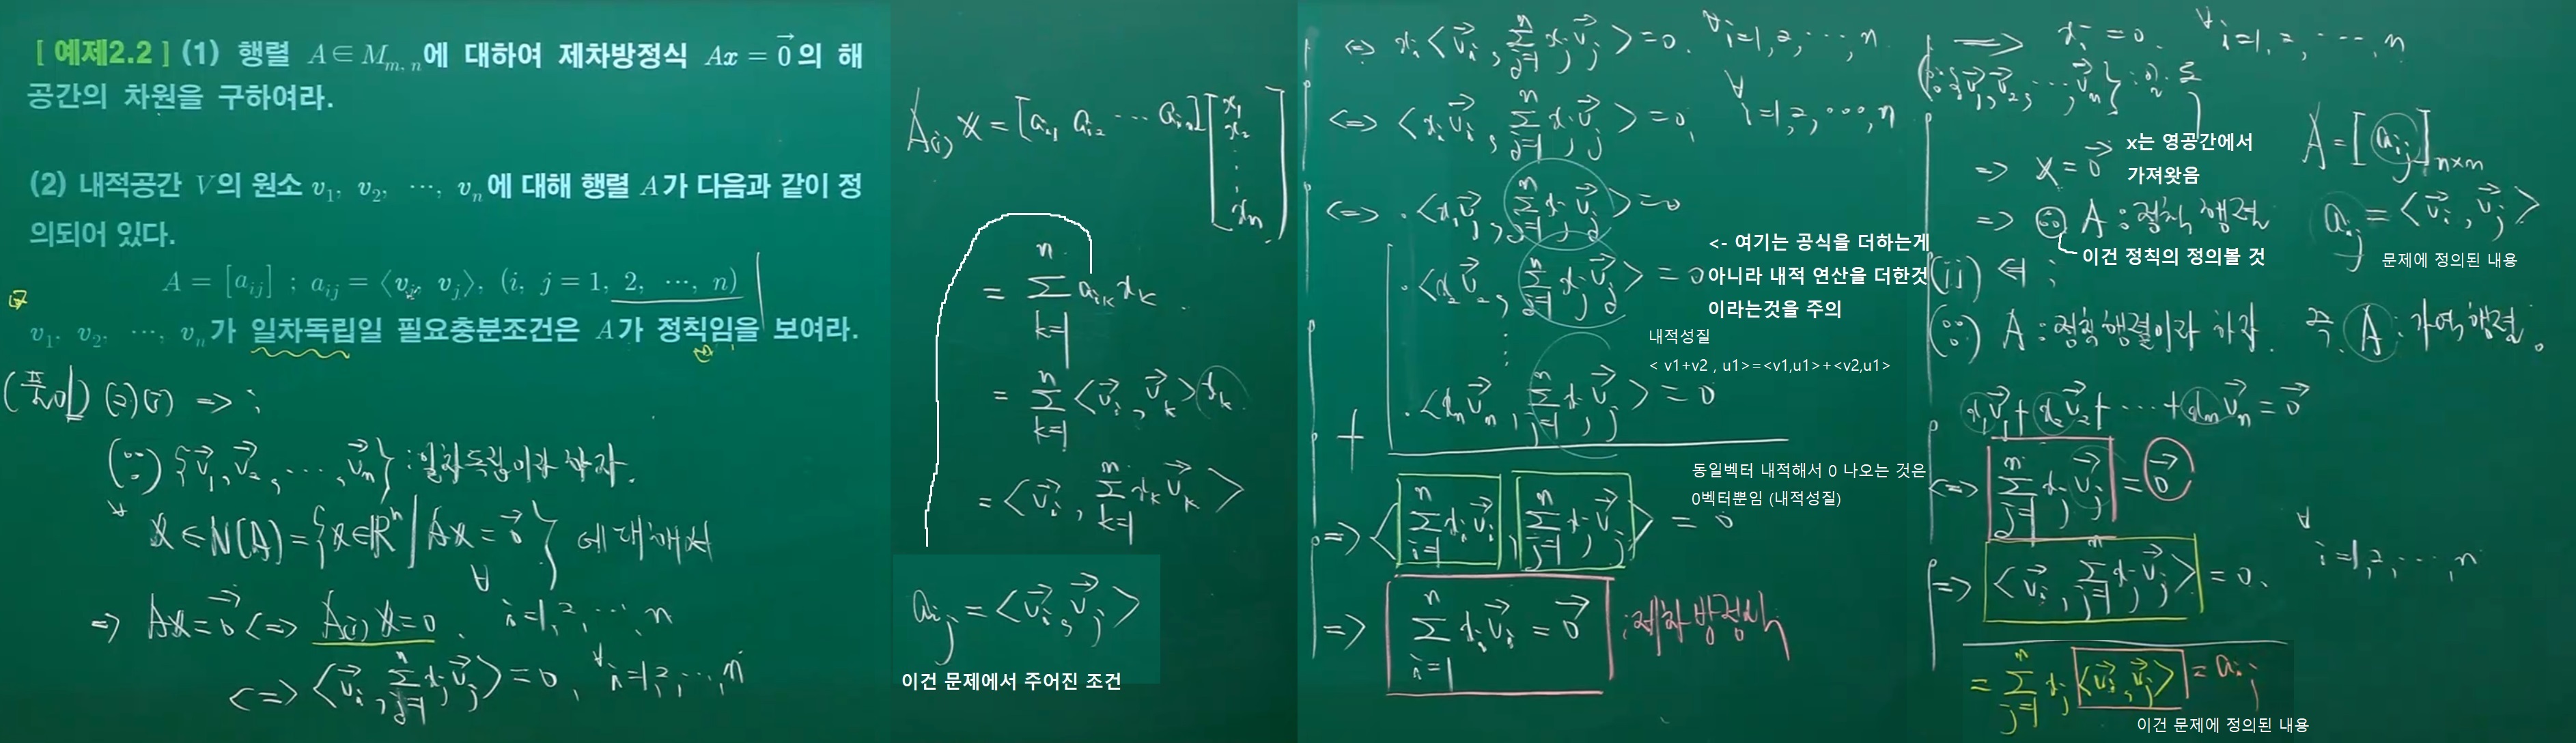 [ 예제2.2 ] (1) 행렬 A∈M_{m, n}에 대하여 제차방정식 Ax = \vec{0}의 해
공간의 차원을 구하여라.
(2) 내적공간 V의 원소 v_1, v_2, ⋯, v_n에 대해 행렬 A가 다음과 같이 정
의되어 있다.
A = [a_{ij}] ; a_{ij} = ⟨v_i, v_j⟩, (i, j = 1, 2, ⋯, n)
v_1, v_2, ⋯, v_n가 일차독립일 필요충분조건은 A가 정칙임을 보여라.
(풀이) (2) (i) => ;
(∵) {\vec{v}_1, \vec{v}_2, ⋯, \vec{v}_n} : 일차독립이라 하자.
∀x ∈ N(A) = {x∈R^n | Ax = \vec{0}} 에 대해서
=> Ax = \vec{0} <=> A_{(i)} x = 0, ∀i=1, 2, ⋯, n
<=> ⟨\vec{v}_i, \sum_{j=1}^{n} x_j \vec{v}_j⟩ = 0, ∀i=1, 2, ⋯, n
A_{(i)} x = [a_{i1} a_{i2} ⋯ a_{in}] [x_1 x_2 ⋮ x_n]
= \sum_{k=1}^{n} a_{ik} x_k
= \sum_{k=1}^{n} ⟨\vec{v}_i, \vec{v}_k⟩ x_k
= ⟨\vec{v}_i, \sum_{k=1}^{n} x_k \vec{v}_k⟩
a_{ij} = ⟨\vec{v}_i, \vec{v}_j⟩
이건 문제에서 주어진 조건
<=> x_i ⟨\vec{v}_i, \sum_{j=1}^{n} x_j \vec{v}_j⟩ = 0, ∀i=1, 2, ⋯, n
<=> ⟨x_i \vec{v}_i, \sum_{j=1}^{n} x_j \vec{v}_j⟩ = 0, ∀i=1, 2, ⋯, n
<=> · ⟨x_1 \vec{v}_1, \sum_{j=1}^{n} x_j \vec{v}_j⟩ = 0
· ⟨x_2 \vec{v}_2, \sum_{j=1}^{n} x_j \vec{v}_j⟩ = 0
⋮
+ · ⟨x_n \vec{v}_n, \sum_{j=1}^{n} x_j \vec{v}_j⟩ = 0
<- 여기는 공식을 더하는게
아니라 내적 연산을 더한것
이라는것을 주의
내적성질
< v1+v2 , u1>=<v1,u1>+<v2,u1>
=> ⟨\sum_{i=1}^{n} x_i \vec{v}_i, \sum_{j=1}^{n} x_j \vec{v}_j⟩ = 0
동일벡터 내적해서 0 나오는 것은
0벡터뿐임 (내적성질)
=> \sum_{i=1}^{n} x_i \vec{v}_i = \vec{0} : 제차방정식
=> x_i = 0, ∀i=1, 2, ⋯, n
(∵ {\vec{v}_1, \vec{v}_2, ⋯, \vec{v}_n} : 일.독)
=> x = \vec{0}
x는 영공간에서
가져왓음
=> ∴ A : 정칙행렬
이건 정칙의 정의볼 것
A = [a_{ij}]_{n×n}
a_{ij} = ⟨\vec{v}_i, \vec{v}_j⟩
문제에 정의된 내용
(ii) <= ;
(∵) A : 정칙행렬이라 하자. 즉, A : 가역행렬.
x_1\vec{v}_1 + x_2\vec{v}_2 + ⋯ + x_n\vec{v}_n = \vec{0}
<=> \sum_{j=1}^{n} x_j \vec{v}_j = \vec{0}
=> ⟨\vec{v}_i, \sum_{j=1}^{n} x_j \vec{v}_j⟩ = 0, ∀i=1, 2, ⋯, n
= \sum_{j=1}^{n} x_j ⟨\vec{v}_i, \vec{v}_j⟩ = a_{ij}
이건 문제에 정의된 내용